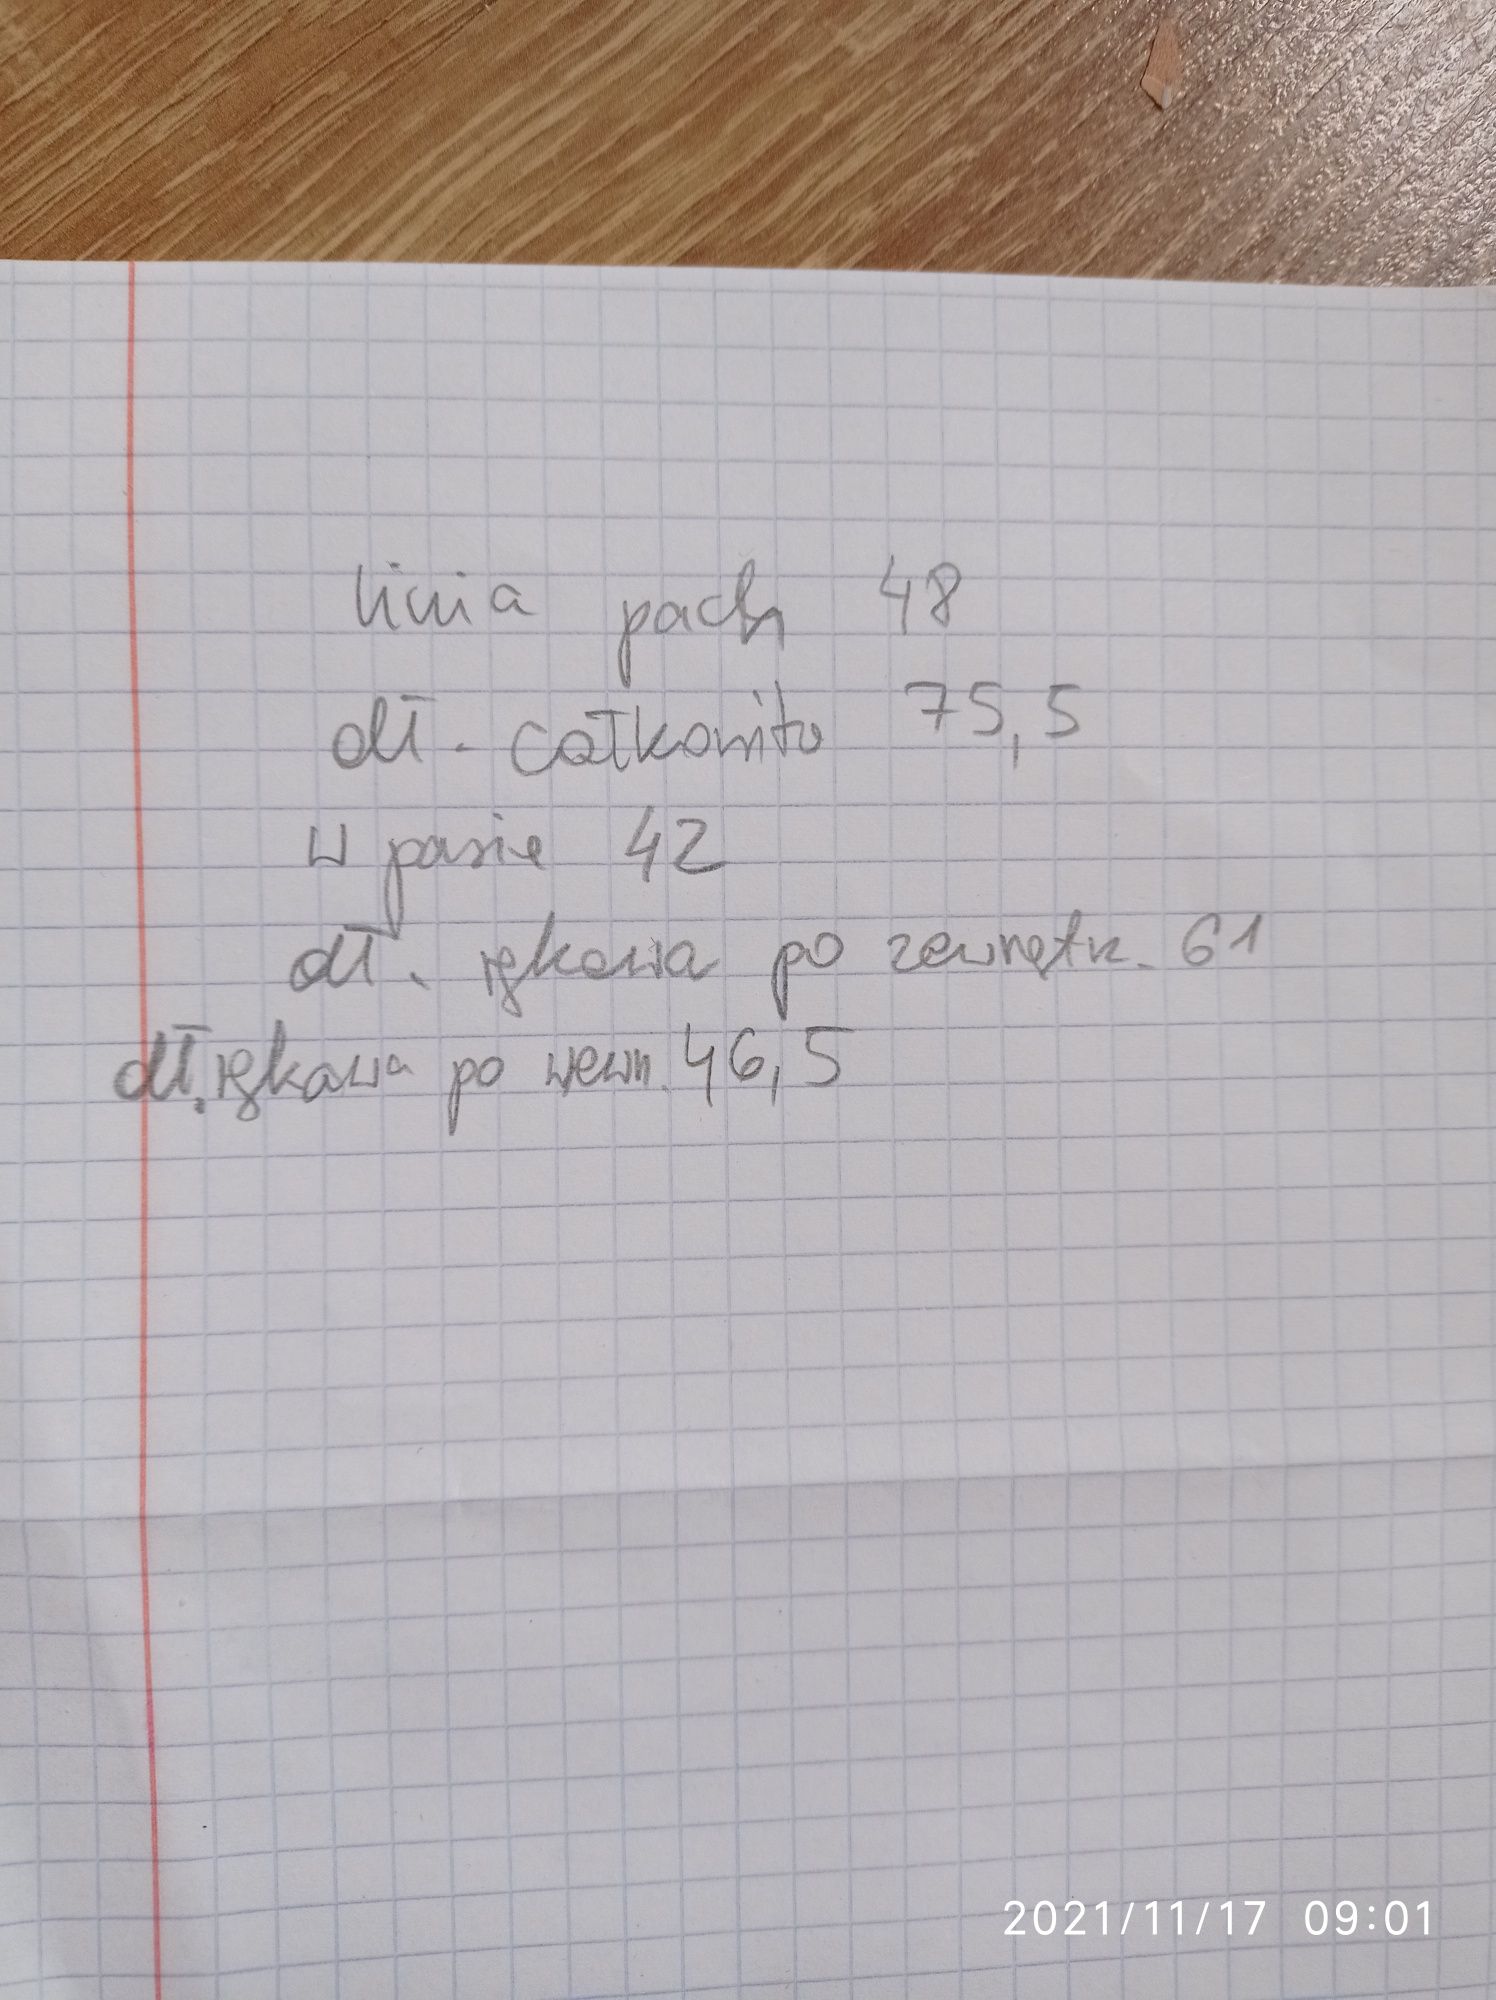 linia pach 48
dł. całkowita 75,5
w pasie 42
dł. rękawa po zewnętrz. 61
dł. rękawa po wewn. 46,5
2021/11/17 09:01